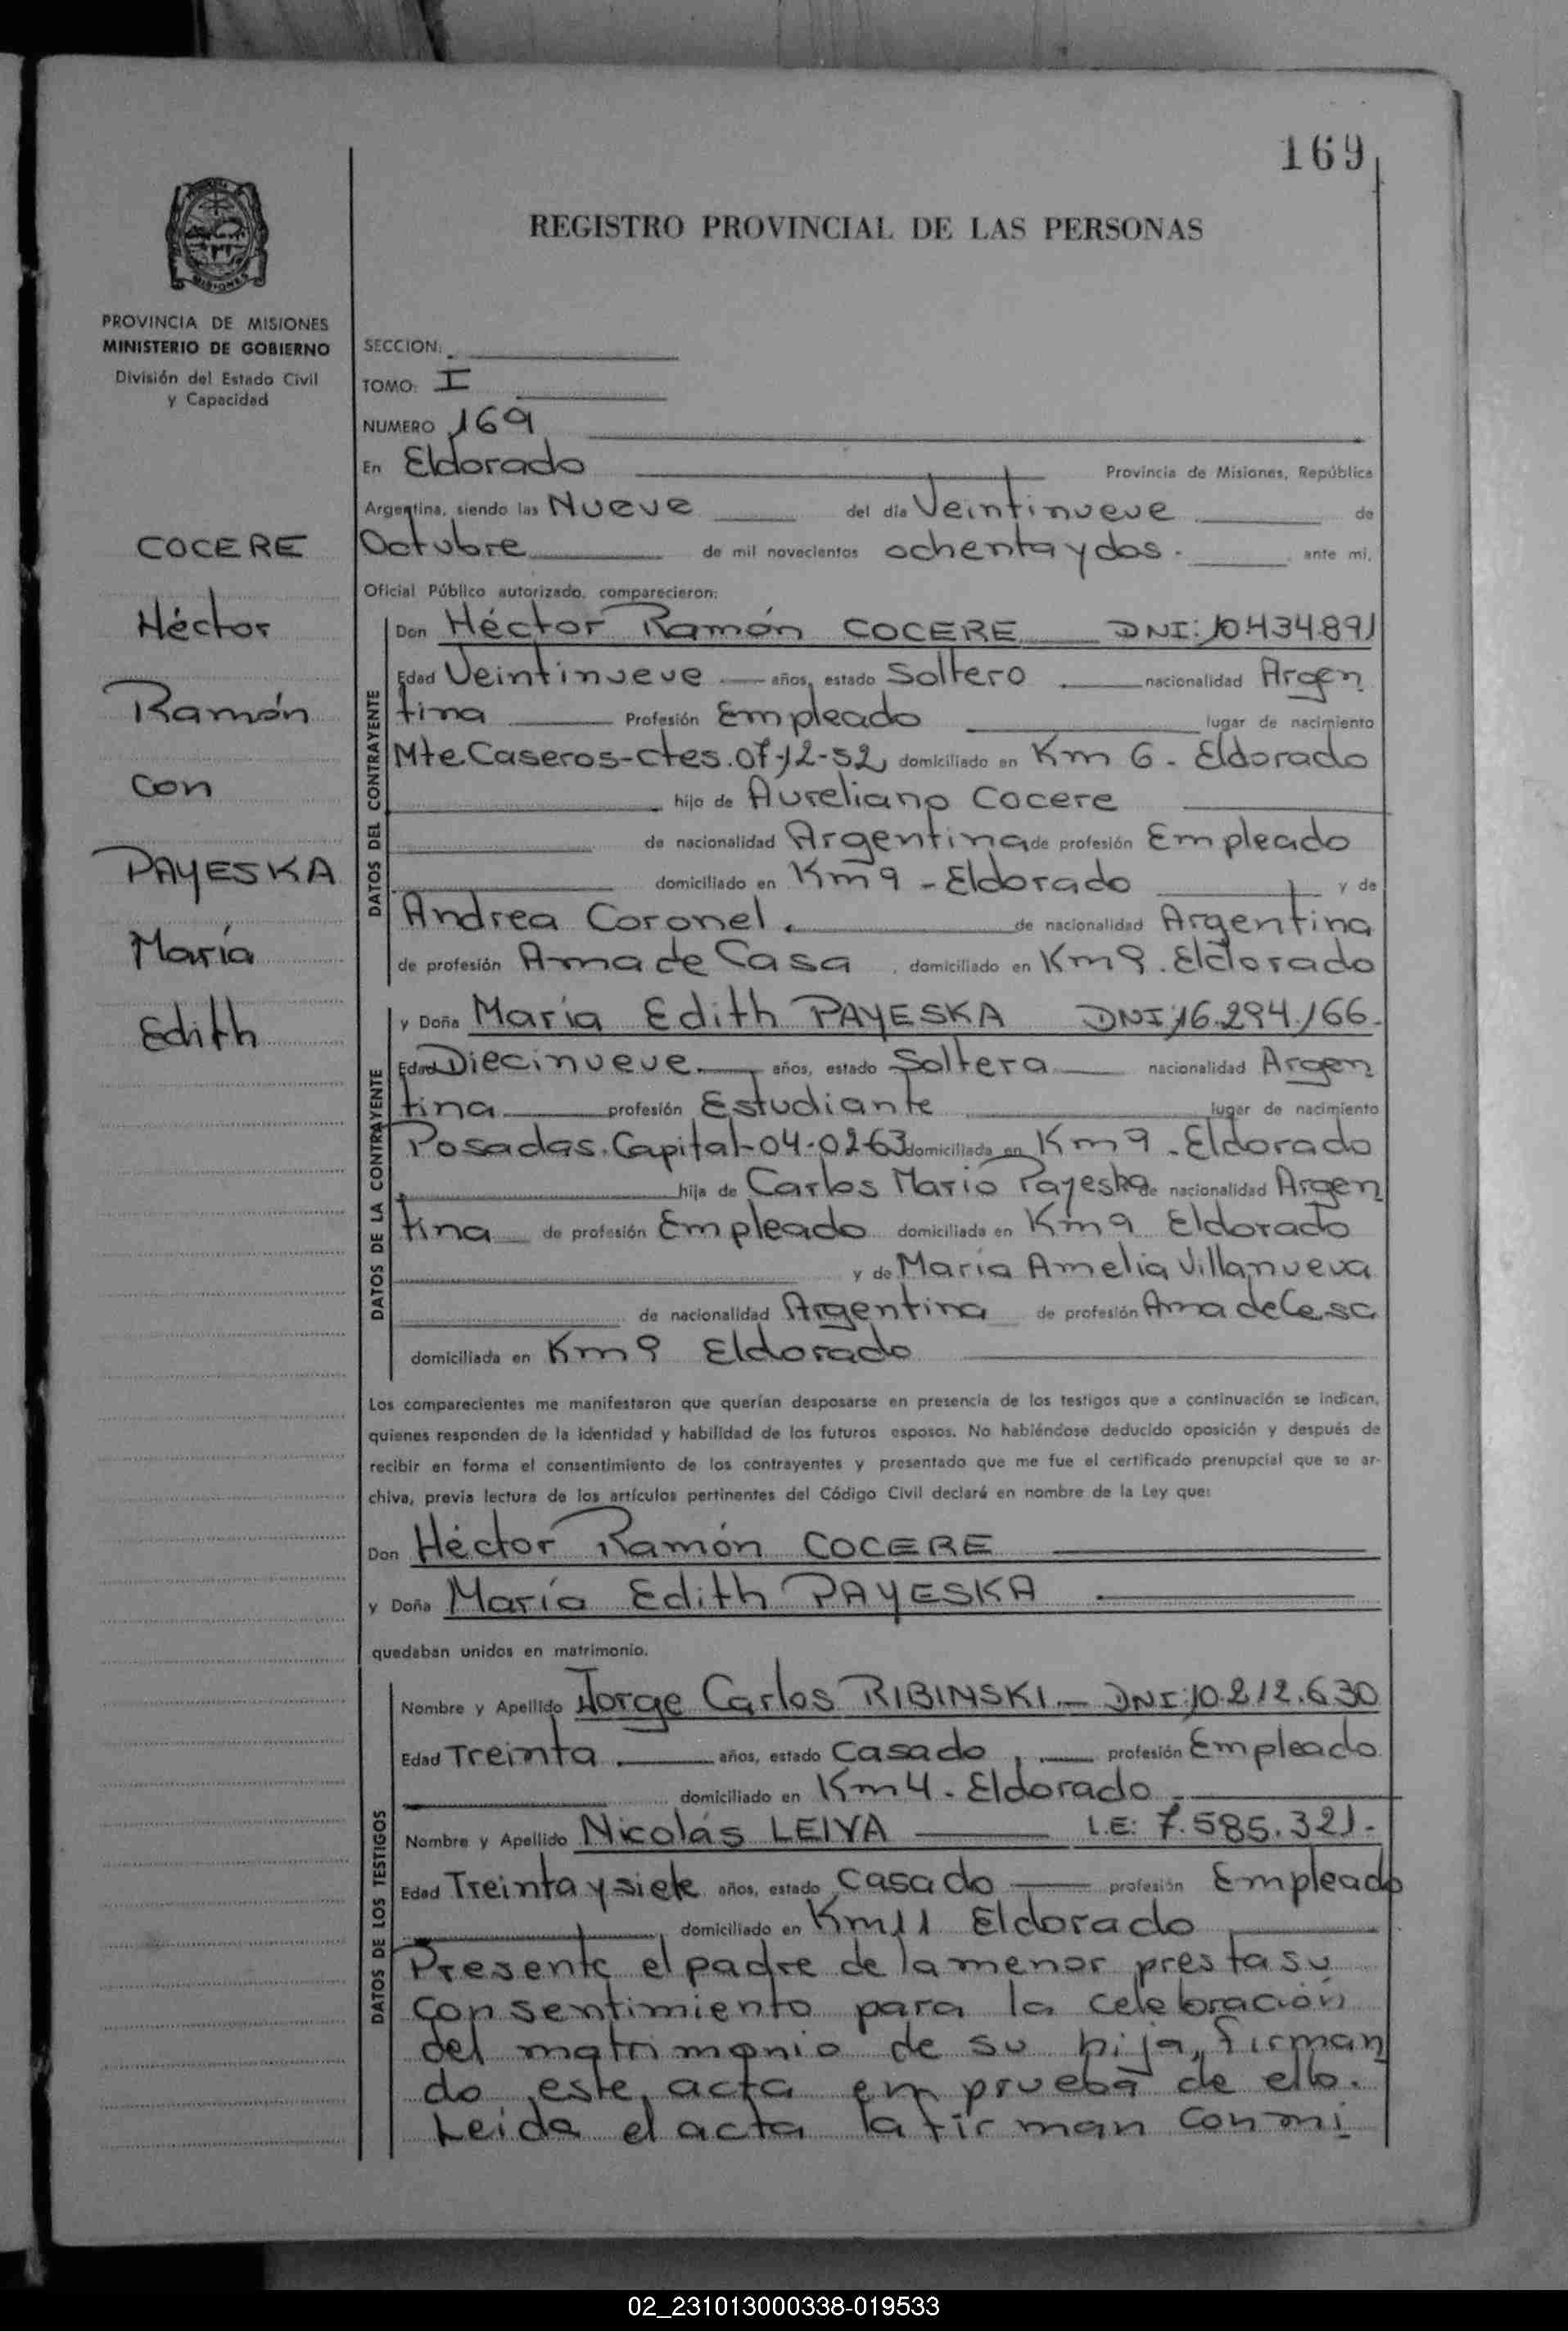 169
REGISTRO PROVINCIAL DE LAS PERSONAS
MISIONES
PROVINCIA DE MISIONES
MINISTERIO DE GOBIERNO
División del Estado Civil
y Capacidad
COCERE
Héctor
Ramón
con
PAYESKA
María
Edith
SECCION:
TOMO: I
NUMERO 169
En Eldorado Provincia de Misiones, República
Argentina, siendo las Nueve del día Veintinueve de
Octubre de mil novecientos ochenta y dos. ante mi,
Oficial Público autorizado, comparecieron:
DATOS DEL CONTRAYENTE
Don Héctor Ramón COCERE DNI: 10.434.891
Edad Veintinueve años, estado Soltero nacionalidad Argen
tina Profesión Empleado lugar de nacimiento
Mte Caseros-ctes. 07-12-52 domiciliado en Km 6 - Eldorado
hijo de Aureliano Cocere
de nacionalidad Argentina de profesión Empleado
domiciliado en Km 9 - Eldorado y de
Andrea Coronel. de nacionalidad Argentina
de profesión Ama de Casa , domiciliado en Km 9. Eldorado
DATOS DE LA CONTRAYENTE
y Doña María Edith PAYESKA DNI: 16.294.166.
Edad Diecinueve años, estado Soltera nacionalidad Argen
tina profesión Estudiante lugar de nacimiento
Posadas. Capital-04-02-63 domiciliada en Km 9 - Eldorado
hija de Carlos Mario Payeska de nacionalidad Argen
tina de profesión Empleado domiciliada en Km 9 Eldorado
y de María Amelia Villanueva
de nacionalidad Argentina de profesión Ama de Casa
domiciliada en Km 9 Eldorado
Los comparecientes me manifestaron que querían desposarse en presencia de los testigos que a continuación se indican,
quienes responden de la identidad y habilidad de los futuros esposos. No habiéndose deducido oposición y después de
recibir en forma el consentimiento de los contrayentes y presentado que me fue el certificado prenupcial que se ar-
chiva, previa lectura de los artículos pertinentes del Código Civil declaré en nombre de la Ley que:
Don Héctor Ramón COCERE
y Doña María Edith PAYESKA
quedaban unidos en matrimonio.
DATOS DE LOS TESTIGOS
Nombre y Apellido Jorge Carlos RIBINSKI - DNI: 10.212.630
Edad Treinta años, estado Casado, profesión Empleado
domiciliado en Km 4 - Eldorado
Nombre y Apellido Nicolás LEIVA L.E: 7.585.321.
Edad Treinta y siete años, estado casado profesión Empleado
domiciliado en Km 11 Eldorado
Presente el padre de la menor presta su
consentimiento para la celebración
del matrimonio de su hija, firman
do este acta em prueba de ello.
Leida el acta la firman con mi
02_231013000338-019533